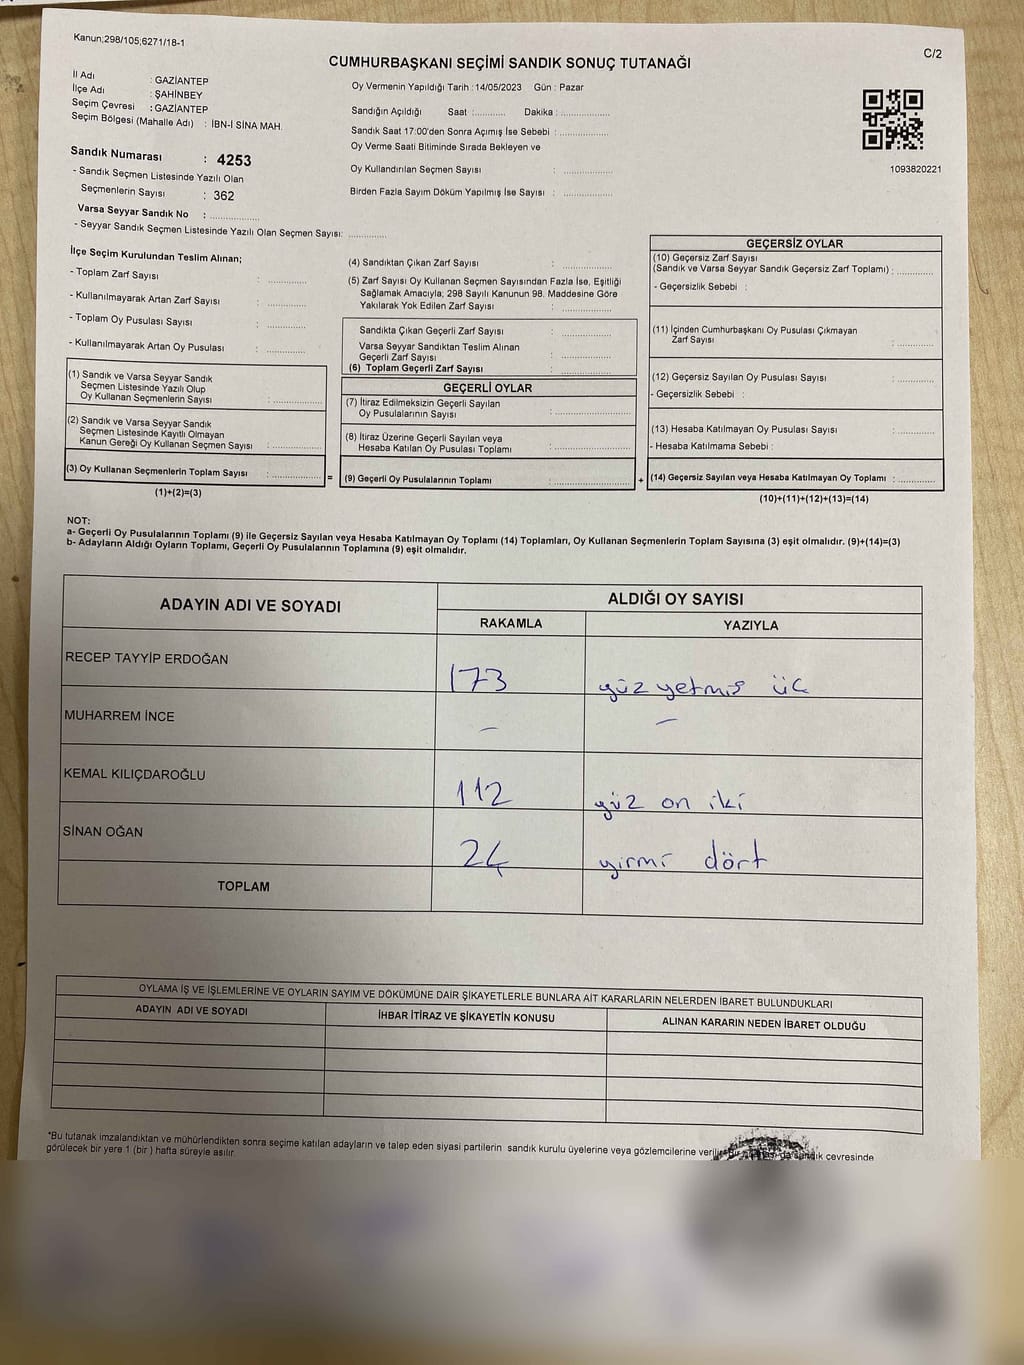 Kanun;298/105;6271/18-1
C/2
CUMHURBAŞKANI SEÇİMİ SANDIK SONUÇ TUTANAĞI
İl Adı : GAZİANTEP
İlçe Adı : ŞAHİNBEY
Seçim Çevresi : GAZİANTEP
Seçim Bölgesi (Mahalle Adı) : İBN-İ SİNA MAH.
Sandık Numarası : 4253
- Sandık Seçmen Listesinde Yazılı Olan
Seçmenlerin Sayısı : 362
Varsa Seyyar Sandık No : ................
- Seyyar Sandık Seçmen Listesinde Yazılı Olan Seçmen Sayısı: ............
Oy Vermenin Yapıldığı Tarih : 14/05/2023 Gün : Pazar
Sandığın Açıldığı Saat :........... Dakika : ................
Sandık Saat 17:00'den Sonra Açımış İse Sebebi : ................
Oy Verme Saati Bitiminde Sırada Bekleyen ve
Oy Kullandırılan Seçmen Sayısı : ................
Birden Fazla Sayım Döküm Yapılmış İse Sayısı : ................
1093820221
İlçe Seçim Kurulundan Teslim Alınan;
- Toplam Zarf Sayısı : ............
- Kullanılmayarak Artan Zarf Sayısı : ............
- Toplam Oy Pusulası Sayısı : ............
- Kullanılmayarak Artan Oy Pusulası : ............
(1) Sandık ve Varsa Seyyar Sandık
Seçmen Listesinde Yazılı Olup
Oy Kullanan Seçmenlerin Sayısı : ................
(2) Sandık ve Varsa Seyyar Sandık
Seçmen Listesinde Kayıtlı Olmayan
Kanun Gereği Oy Kullanan Seçmen Sayısı : ................
(3) Oy Kullanan Seçmenlerin Toplam Sayısı : ................
(1)+(2)=(3)
(4) Sandıktan Çıkan Zarf Sayısı : ................
(5) Zarf Sayısı Oy Kullanan Seçmen Sayısından Fazla İse, Eşitliği
Sağlamak Amacıyla; 298 Sayılı Kanunun 98. Maddesine Göre
Yakılarak Yok Edilen Zarf Sayısı : ................
Sandıkta Çıkan Geçerli Zarf Sayısı : ................
Varsa Seyyar Sandıktan Teslim Alınan
Geçerli Zarf Sayısı : ................
(6) Toplam Geçerli Zarf Sayısı : ................
GEÇERLİ OYLAR
(7) İtiraz Edilmeksizin Geçerli Sayılan
Oy Pusulalarının Sayısı : ................
(8) İtiraz Üzerine Geçerli Sayılan veya
Hesaba Katılan Oy Pusulası Toplamı : ................
= (9) Geçerli Oy Pusulalarının Toplamı : ................ +
GEÇERSİZ OYLAR
(10) Geçersiz Zarf Sayısı
(Sandık ve Varsa Seyyar Sandık Geçersiz Zarf Toplamı) : ............
- Geçersizlik Sebebi :
(11) İçinden Cumhurbaşkanı Oy Pusulası Çıkmayan
Zarf Sayısı : ............
(12) Geçersiz Sayılan Oy Pusulası Sayısı : ............
- Geçersizlik Sebebi :
(13) Hesaba Katılmayan Oy Pusulası Sayısı : ............
- Hesaba Katılmama Sebebi :
(14) Geçersiz Sayılan veya Hesaba Katılmayan Oy Toplamı : ............
(10)+(11)+(12)+(13)=(14)
NOT:
a- Geçerli Oy Pusulalarının Toplamı (9) ile Geçersiz Sayılan veya Hesaba Katılmayan Oy Toplamı (14) Toplamları, Oy Kullanan Seçmenlerin Toplam Sayısına (3) eşit olmalıdır. (9)+(14)=(3)
b- Adayların Aldığı Oyların Toplamı, Geçerli Oy Pusulalarının Toplamına (9) eşit olmalıdır.
ADAYIN ADI VE SOYADI ALDIĞI OY SAYISI
RAKAMLA YAZIYLA
RECEP TAYYİP ERDOĞAN 173 yüz yetmiş üç
MUHARREM İNCE – –
KEMAL KILIÇDAROĞLU 112 yüz on iki
SİNAN OĞAN 24 yirmi dört
TOPLAM
OYLAMA İŞ VE İŞLEMLERİNE VE OYLARIN SAYIM VE DÖKÜMÜNE DAİR ŞİKAYETLERLE BUNLARA AİT KARARLARIN NELERDEN İBARET BULUNDUKLARI
ADAYIN ADI VE SOYADI İHBAR İTİRAZ VE ŞİKAYETİN KONUSU ALINAN KARARIN NEDEN İBARET OLDUĞU
*Bu tutanak imzalandıktan ve mühürlendikten sonra seçime katılan adayların ve talep eden siyasi partilerin sandık kurulu üyelerine veya gözlemcilerine sandık çevresinde
görülecek bir yere 1 (bir ) hafta süreyle asılır.